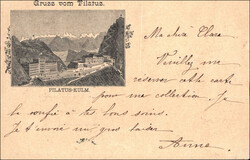 Gruss vom Pilatus.
PILATUS-KULM
Ma chère Clara
Veuillez me
réserver cette carte
pour une collection. Je
la confie à tes bons soins.
Je t'envoie un gros baiser
Anna